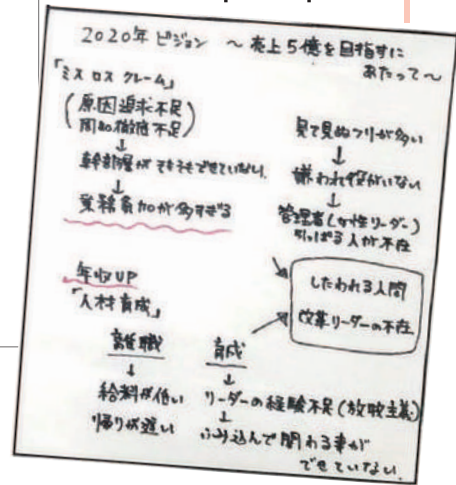 2020年 ビジョン 〜売上5億を目指すに
あたって〜
「ミス ロス クレーム」
(原因追求不足
周知徹底不足)
↓
幹部層がそもそもできていない。
↓
業務負加が多すぎる
見て見ぬフリが多い
↓
嫌われ役がいない
↓
管理者(女性リーダー)
引っぱる人が不在
したわれる人間
改革リーダーの不在
年収UP
「人材育成」
離職
↓
給料が低い
帰りが遅い
育成
↓
リーダーの経験不足(放牧主義)
↓
ふみ込んで関わる事が
できていない。